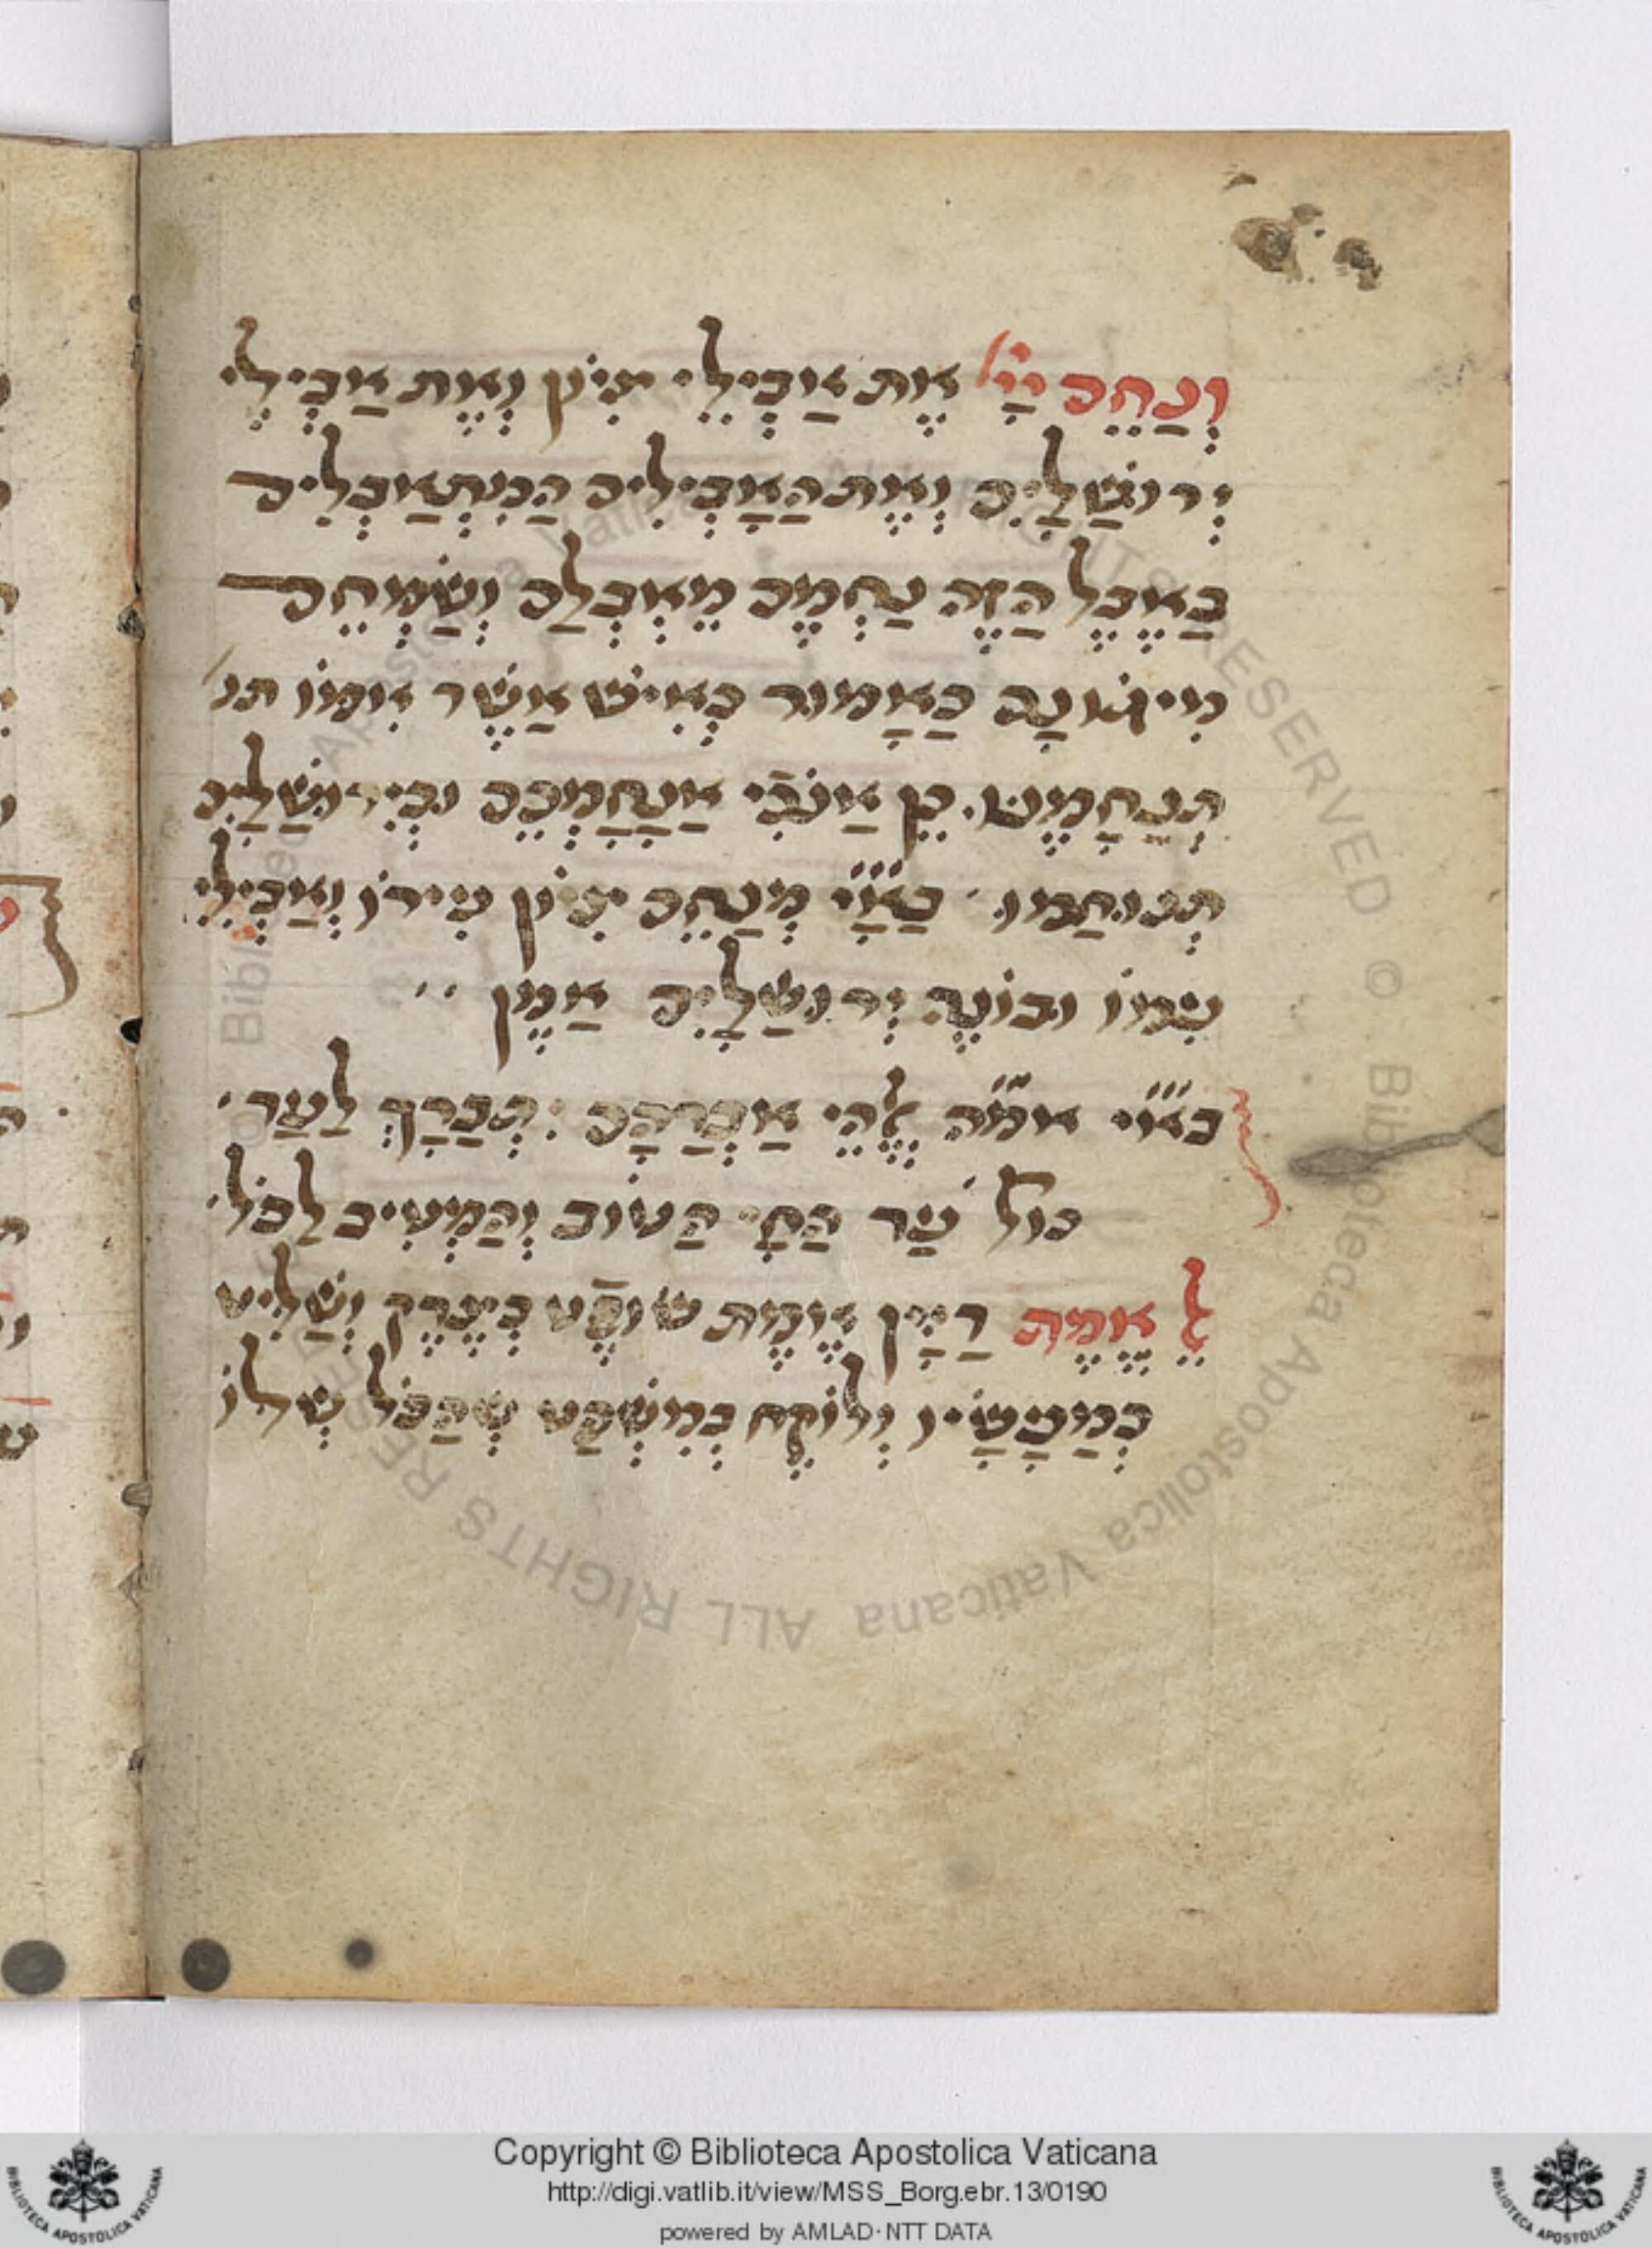 וְנַחֵם יְיָ אֶת אַבֵילֵי צִיוֹן וְאֶת אַבֵילֵי
יְרוּשָׁלַיִם וְאֶת הַאָבֵילִים הַמִתְאַבְלִים
בַאֶבֶל הַזֶה נַחְמֶם מֵאֶבְלַם וְשַׂמְחֵם
מִיגוֹנָם כַאָמוּר כְאִישׁ אַשֶׁר אִמוֹ תנ
תְנַחַמֶנוּ. כֵן אַנֹכִי אַנַחָמְכֶם וּבִירוּשָׁלַיִם
תְנוּחַמוּ. בָא״י מְנַחֵם צִיוֹן עִירוֹ וְאַבֵילֵי
עִמוֹ וּבוֹנֶה יְרוּשָׁלַיִם אַמֵן
בא״י אמ״ה אֱלֹהֵי אַבְרָהָם. תְבָרָךְ לַעַד.
כול עַד הַחַי הַטוֹב וְהַמְטִיב לַכֹל.
אֵל אֱמֶת דַיָין אֶמֶת שׁוֹפֵט בְצֶדֶק וְשַׁלִיט
בְמַעָשָׂיו וְלוֹקֵחַ בְמִשְׁפָט שְׁהַכֹל שְׁלוֹ
Copyright © Biblioteca Apostolica Vaticana
http://digi.vatlib.it/view/MSS_Borg.ebr.13/0190
powered by AMLAD·NTT DATA